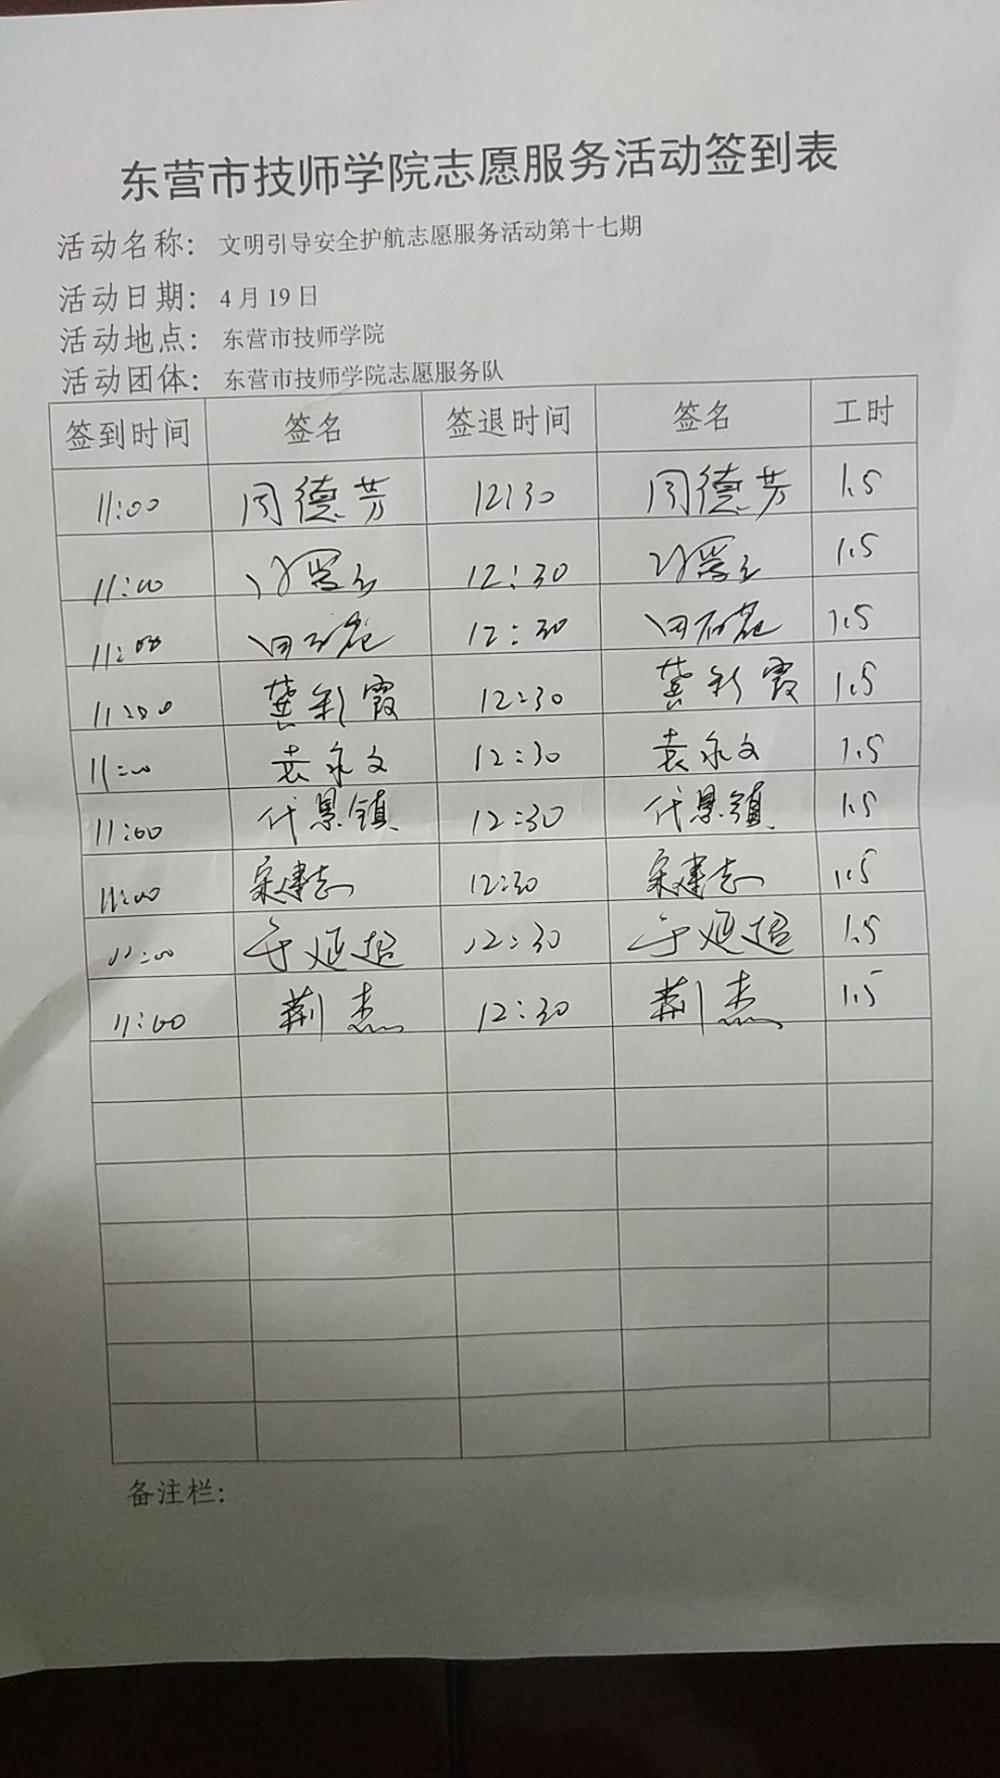 东营市技师学院志愿服务活动签到表
活动名称： 文明引导安全护航志愿服务活动第十七期
活动日期： 4 月 19 日
活动地点： 东营市技师学院
活动团体： 东营市技师学院志愿服务队
签到时间 签名 签退时间 签名 工时
11:00 周德芳 12:30 周德芳 1.5
11:00 12:30 1.5
11:00 12:30 1.5
11:00 龚彩霞 12:30 龚彩霞 1.5
11:00 袁永文 12:30 袁永文 1.5
11:00 代景镇 12:30 代景镇 1.5
11:00 宋建志 12:30 宋建志 1.5
11:00 于延超 12:30 于延超 1.5
11:00 荆杰 12:30 荆杰 1.5
备注栏：